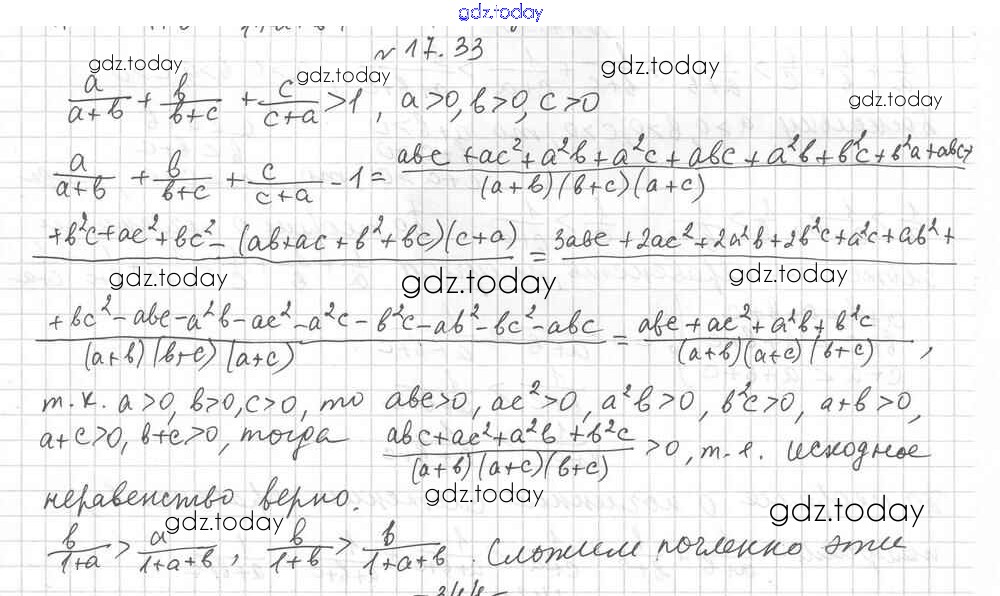 gdz.today
№ 17.33
gdz.today gdz.today gdz.today
a/(a+b) + b/(b+c) + c/(c+a) > 1, a>0, b>0, c>0 gdz.today
a/(a+b) + b/(b+c) + c/(c+a) - 1 = (abc + ac² + a²b + a²c + abc + a²b + b²c + b²a + abc +)/((a+b)(b+c)(a+c))
+ b²c + ac² + bc² - (ab + ac + b² + bc)(c+a) = 3abc + 2ac² + 2a²b + 2b²c + a²c + ab² +
gdz.today gdz.today gdz.today
(+ bc² - abc - a²b - ac² - a²c - b²c - ab² - bc² - abc)/((a+b)(b+c)(a+c)) = (abc + ac² + a²b + b²c)/((a+b)(a+c)(b+c)),
т.к. a>0, b>0, c>0, то abc>0, ac²>0, a²b>0, b²c>0, a+b>0,
a+c>0, b+c>0, тогда (abc+ac²+a²b+b²c)/((a+b)(a+c)(b+c)) >0, т.е. исходное
неравенство верно. gdz.today
gdz.today gdz.today
b/(1+a) > a/(1+a+b), b/(1+b) > b/(1+a+b). Сложим почленно эти